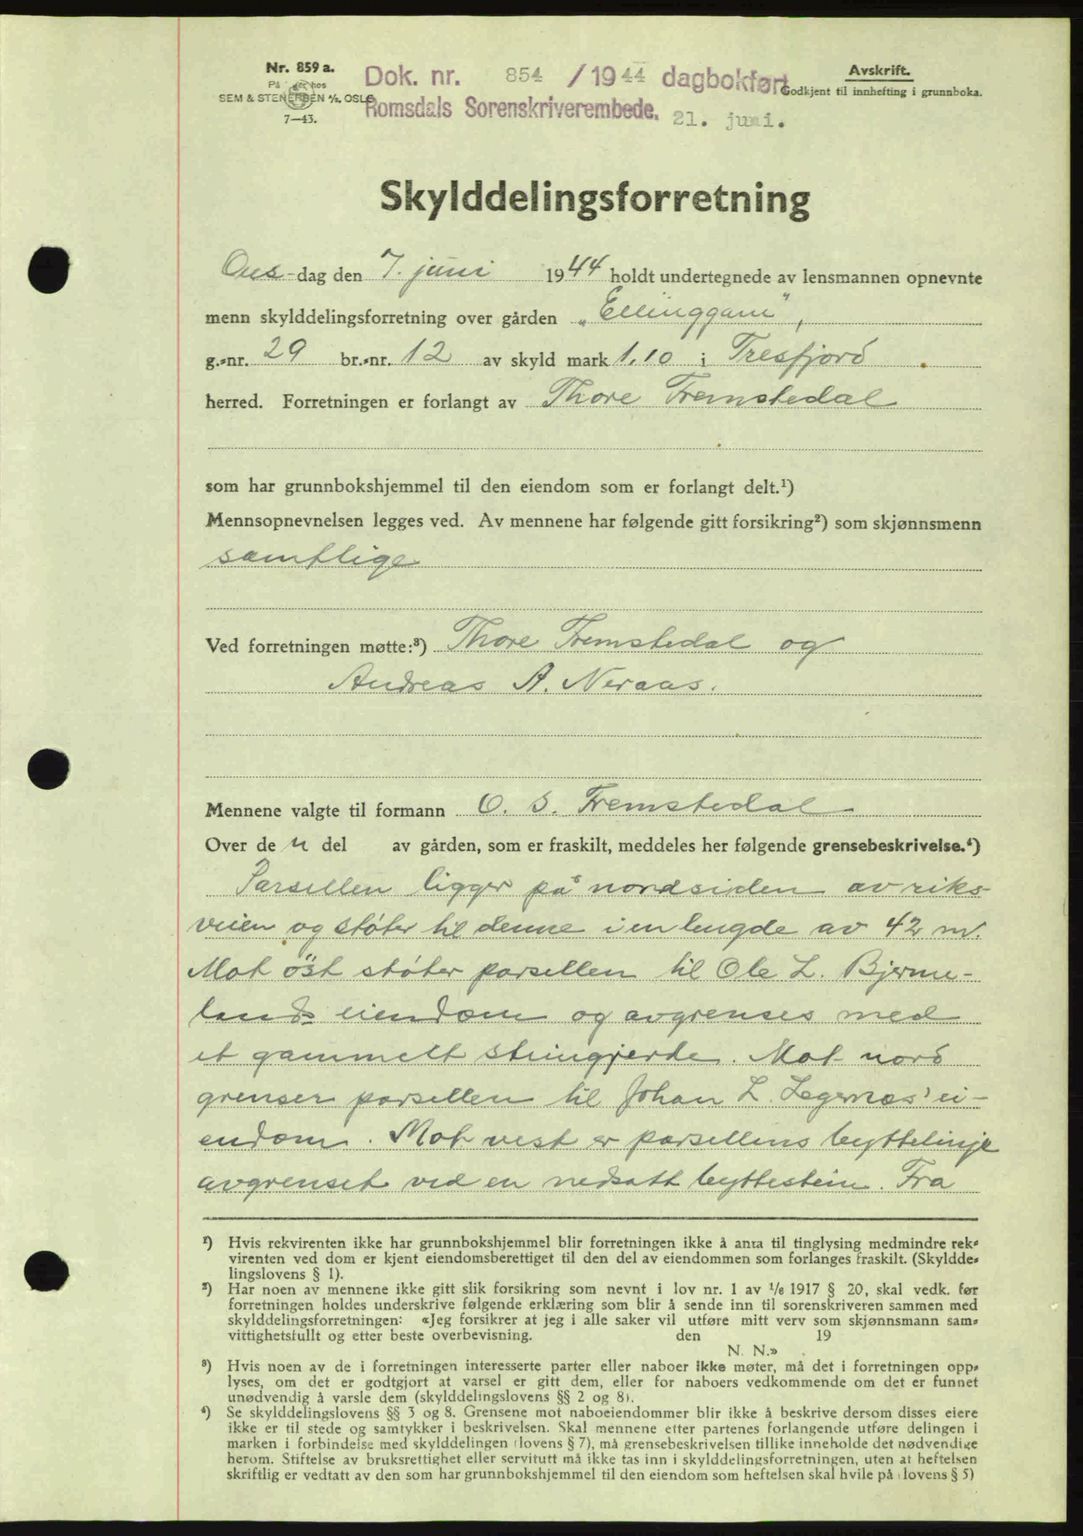 Nr. 859 a.
På hos
SEM & STENERSEN A/S, OSLO
7—43.
Dok. nr. 854 / 1944 dagbokført
Romsdals Sorenskriverembede. 21. juni.
Avskrift.
Godkjent til innhefting i grunnboka.
Skylddelingsforretning
Ons-dag den 7. juni 1944 holdt undertegnede av lensmannen opnevnte
menn skylddelingsforretning over gården „Ellinggard”,
g.-nr. 29 br.-nr. 12 av skyld mark 1.10 i Tresfjord
herred. Forretningen er forlangt av Thore Fremstedal
som har grunnbokshjemmel til den eiendom som er forlangt delt.¹)
Mennsopnevnelsen legges ved. Av mennene har følgende gitt forsikring²) som skjønnsmenn
samtlige
Ved forretningen møtte:³) Thore Fremstedal og
Andreas A. Neraas.
Mennene valgte til formann O. S. Fremstedal
Over de n del av gården, som er fraskilt, meddeles her følgende grensebeskrivelse.⁴)
Parsellen ligger på nordsiden av riks-
veien og støter til denne i en lengde av 42 m.
Mot øst støter parsellen til Ole L. Bjerme-
lands eiendom og avgrenses med
et gammelt steingjerde. Mot nord
grenser parsellen til Johan L. Legernæs' ei-
endom. Mot vest er parsellens byttelinje
avgrenset ved en nedsatt byttestein. Fra
¹) Hvis rekvirenten ikke har grunnbokshjemmel blir forretningen ikke å anta til tinglysing medmindre rek-
virenten ved dom er kjent eiendomsberettiget til den del av eiendommen som forlanges fraskilt. (Skyldde-
lingslovens § 1).
²) Har noen av mennene ikke gitt slik forsikring som nevnt i lov nr. 1 av ¹/₆ 1917 § 20, skal vedk. før
forretningen holdes underskrive følgende erklæring som blir å sende inn til sorenskriveren sammen med
skylddelingsforretningen: «Jeg forsikrer at jeg i alle saker vil utføre mitt verv som skjønnsmann sam-
vittighetsfullt og etter beste overbevisning. den 19
N. N.»
³) Hvis noen av de i forretningen interesserte parter eller naboer ikke møter, må det i forretningen opp-
lyses, om det er godtgjort at varsel er gitt dem, eller for naboers vedkommende om det er funnet
unødvendig å varsle dem (skylddelingslovens §§ 2 og 8).
⁴) Se skylddelingslovens §§ 3 og 8. Grensene mot naboeiendommer blir ikke å beskrive dersom disses eiere
ikke er til stede og samtykker i beskrivelsen. Skal mennene etter partenes forlangende utføre delingen i
marken i forbindelse med skylddelingen (lovens § 7), må grensebeskrivelsen tillike inneholde det nødvendige
herom. Stiftelse av bruksrettighet eller servitutt må ikke tas inn i skylddelingsforretningen, uten at heftelsen
skriftlig er vedtatt av den som har grunnbokshjemmel til den eiendom som heftelsen skal hvile på (lovens § 5)